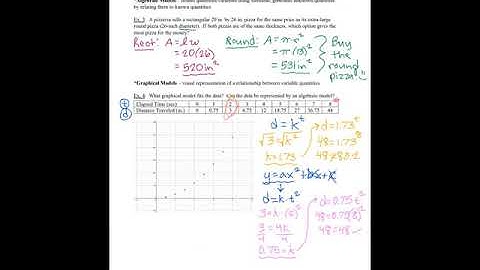 *Algebraic Models – relates quantities variables using variable, geometric unknown quantities
by relating them to known quantities
Ex. 3 A pizzeria sells a rectangular 20 in. by 26 in. pizza for the same price as its extra-large
round pizza (26-inch diameter). If both pizzas are of the same thickness, which option gives the
most pizza for the money?
Rect: A = lw
= 20(26)
= 520in²
Round: A = πr²
= π(13)²
= 531in²
Buy
the
round
pizza!
*Graphical Models – visual representation of a relationship between variable quantities
Ex. 4 What graphical model fits the data? Can the data be represented by an algebraic model?
t Elapsed Time (sec) 0 1 2 3 4 5 6 7 8
d Distance Traveled (in.) 0 0.75 3 6.75 12 18.75 27 36.75 48
d = k^t
√3 = √k²
k = 1.73
d = 1.73^t
48 = 1.73⁸
48 ≠ 80.2
y = ax² + bx + c
d = k·t²
3 = k·(2)²
3/4 = 4k/4
0.75 = k
d = 0.75t²
48 = 0.75(8)²
48 = 48